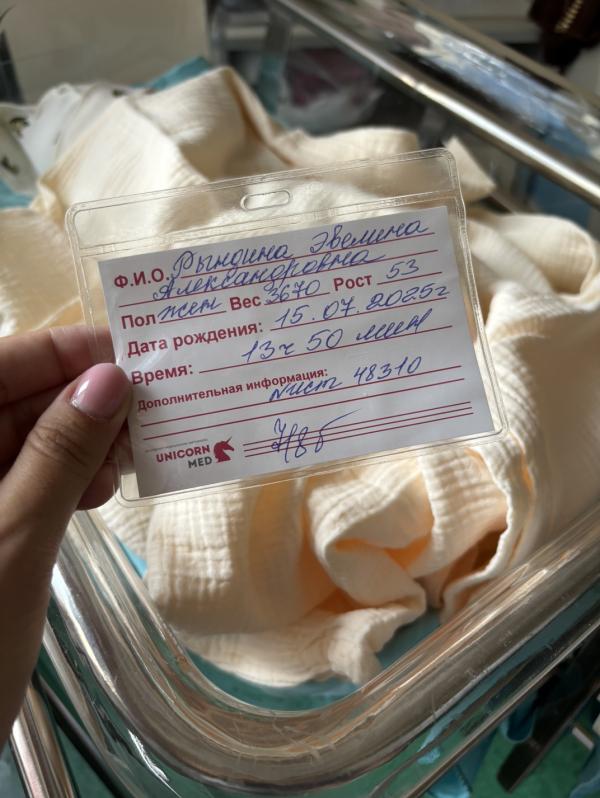 Ф.И.О. Рындина Эвелина
Александровна
Пол жен Вес 3670 Рост 53
Дата рождения: 15.07.2025г
Время: 13ч 50 мин
Дополнительная информация:
№ист 48310
UNICORN
MED